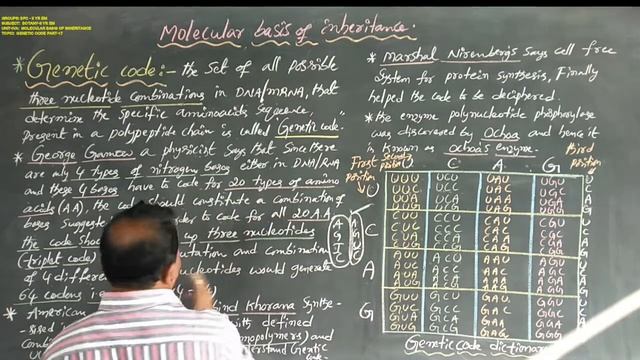 GROUPS: BPC - II YR EM
SUBJECT: BOTANY-II YR EM
UNIT: MOLECULAR BASIS OF INHERITANCE
TOPIC: GENETIC CODE PART-17
Molecular basis of inheritance.
* Genetic code:- the set of all possible
three nucleotide combinations in DNA/mRNA, that
determine the specific aminoacids sequence,
present in a polypeptide chain is called Genetic code.
* George Gamow a physicist says that since there
are only 4 types of nitrogen bases either in DNA/RNA
and these 4 bases have to code for 20 types of amino
acids (AA), the code should constitute a combination of
bases Suggested order to code for all 20 AA
the code three nucleotides
(triplet code) permutation and combination
of 4 nucleotides would generate
64 codons
* American Khorana Synthe-
defined
(homopolymers) and
Genetic
code.
A
G
T
C
A
G
U
C
* Marshal Nirenberg's says cell free
System for protein synthesis, Finally
helped the code to be deciphered.
* the enzyme polynucleotide phosphorylase
was discovered by Ochoa and hence it
is known as Ochoa's enzyme.
First position
Second position
Third position
U C A G
UUU UCU UAU UGU U
UUC UCC UAC UGC C
UUA UCA UAA UGA A
UUG UCG UAG UGG G
C
CUU CCU CAU CGU U
CUC CCC CAC CGC C
CUA CCA CAA CGA A
CUG CCG CAG CGG G
A
AUU ACU AAU AGU U
AUC ACC AAC AGC C
AUA ACA AAA AGA A
AUG ACG AAG AGG G
G
GUU GCU GAU GGU U
GUC GCC GAC GGC C
GUA GCA GAA GGA A
GUG GCG GAG GGG G
Genetic code dictionary